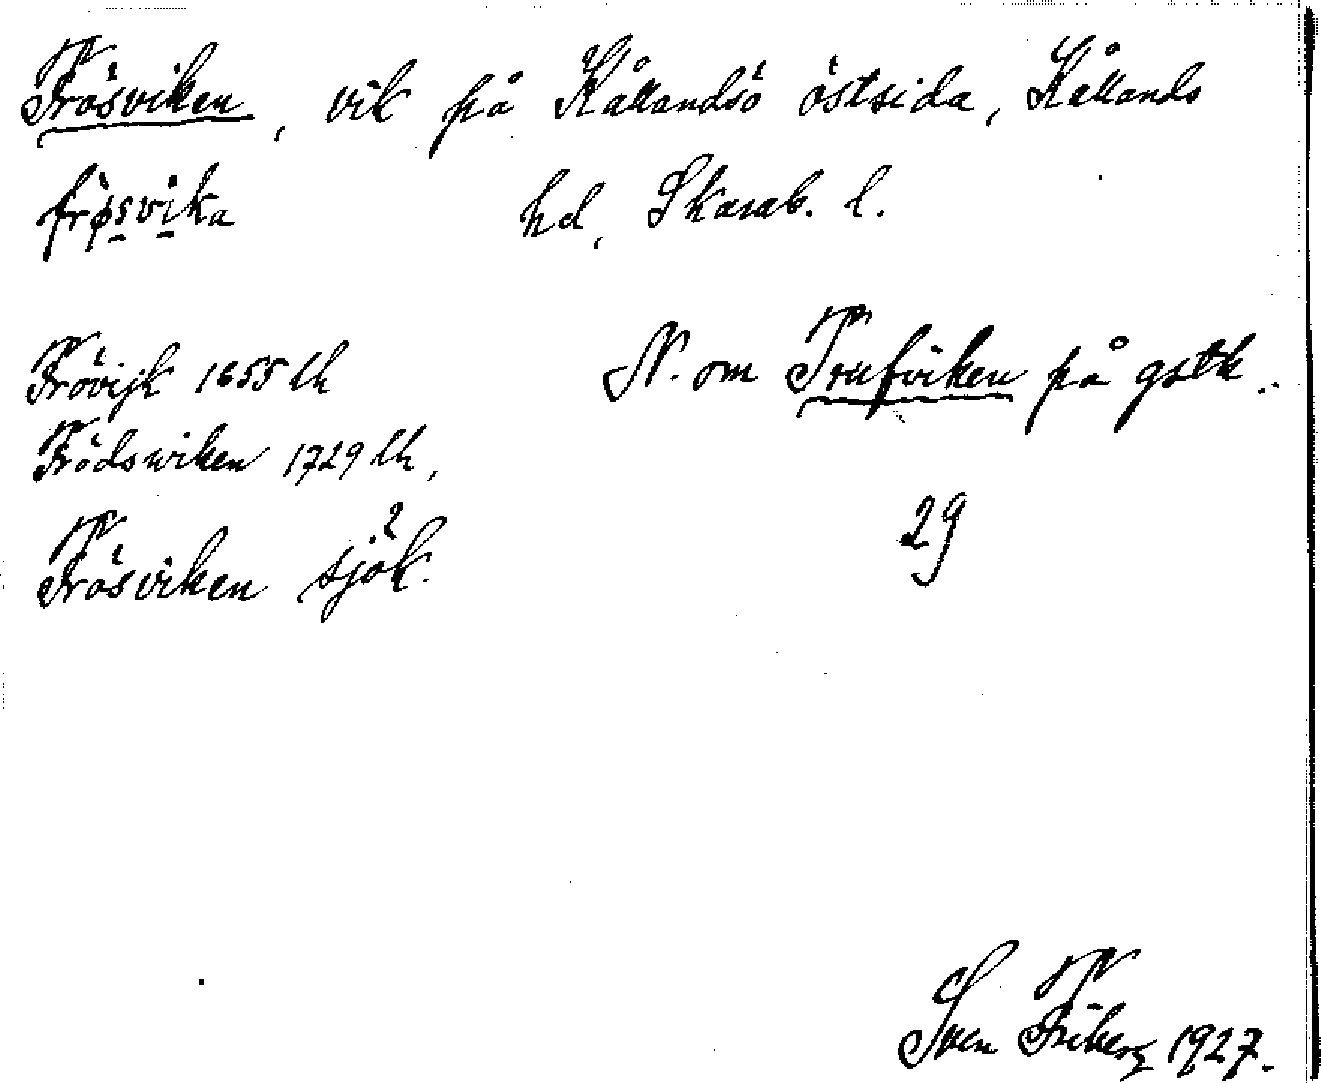 Frösviken, vik på Kållandsö östsida, Kållands
frøsvika hd, Skarab. l.
Frövijk 1655 lh N. om Trufviken på gstk.
Frödswiken 1729 lh,
Frösviken sjök.2 29
Sven Friberg 1927.